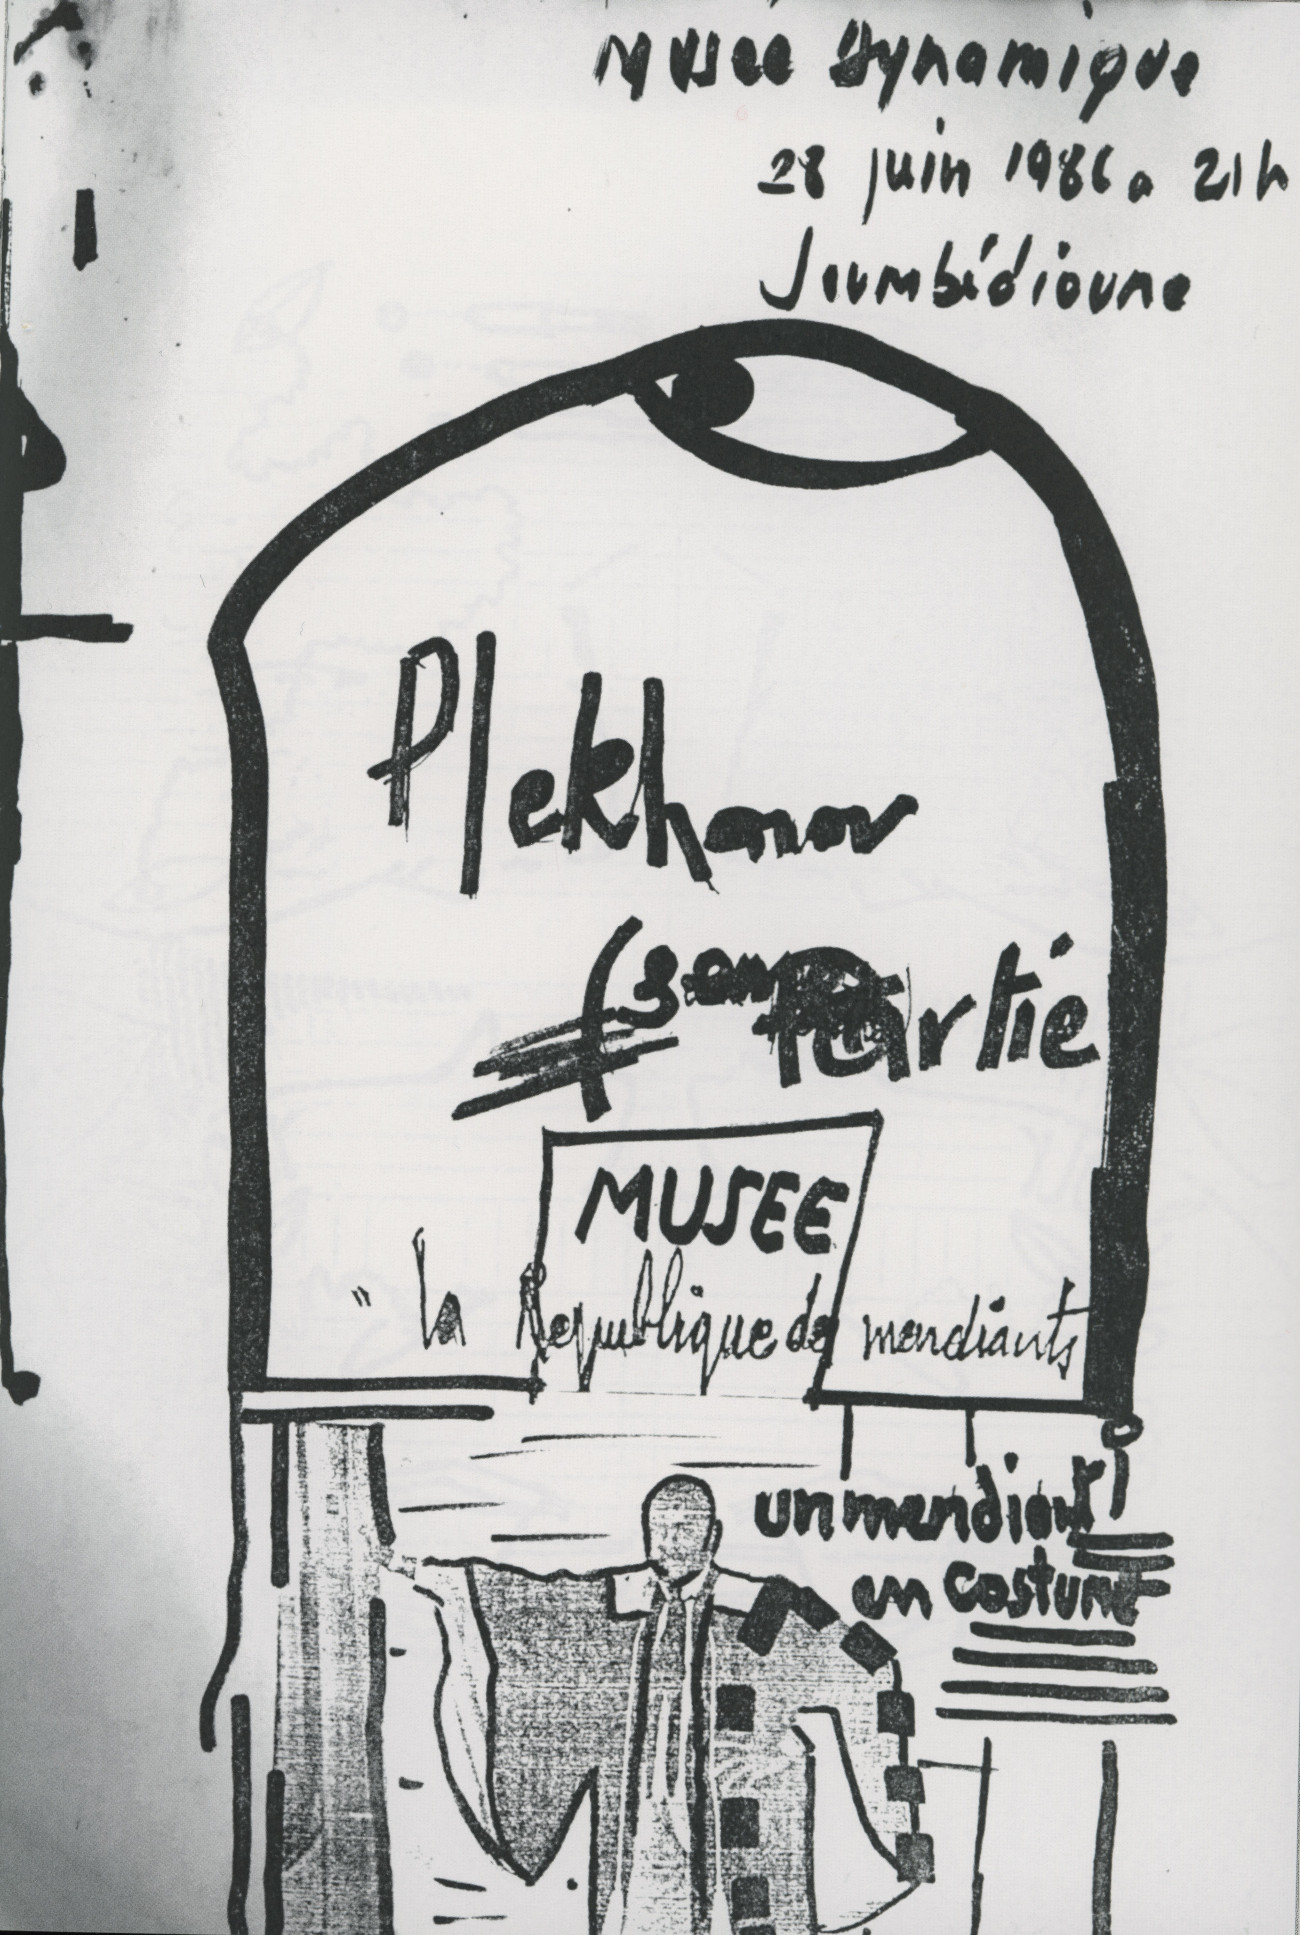 Musée Dynamique
28 juin 1986 a 21h
Soumbédioune
Plekhanov
(3eme Partie
MUSEE
"la Republique de mendiants
un mendiant
en costume